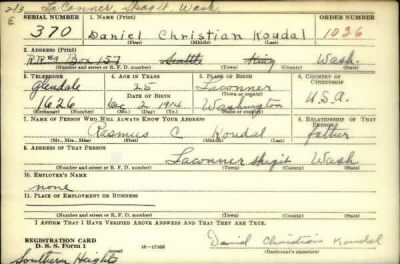 213 LaConner, Skagit, Wash
E
SERIAL NUMBER 1. NAME (Print) ORDER NUMBER
370 Daniel Christian Koudal 1026
(First) (Middle) (Last)
2. ADDRESS (Print)
RR#2 Box 157 Seattle King Wash.
(Number and street or R. F. D. number) (Town) (County) (State)
3. TELEPHONE 4. AGE IN YEARS 5. PLACE OF BIRTH 6. COUNTRY OF CITIZENSHIP
Glendale 25 Laconner
DATE OF BIRTH (Town or county)
1626 Dec 2 1914 Washington U.S.A.
(Exchange) (Number) (Mo.) (Day) (Yr.) (State or country)
7. NAME OF PERSON WHO WILL ALWAYS KNOW YOUR ADDRESS 8. RELATIONSHIP OF THAT PERSON
Rasmus C Koudal father
(Mr., Mrs., Miss) (First) (Middle) (Last)
9. ADDRESS OF THAT PERSON
Laconner Skagit Wash
(Number and street or R. F. D. number) (Town) (County) (State)
10. EMPLOYER'S NAME
none
11. PLACE OF EMPLOYMENT OR BUSINESS
(Number and street or R. F. D. number) (Town) (County) (State)
I AFFIRM THAT I HAVE VERIFIED ABOVE ANSWERS AND THAT THEY ARE TRUE.
REGISTRATION CARD
D. S. S. Form 1 Daniel Christian Koudal
(Registrant's signature)
Southern Heights